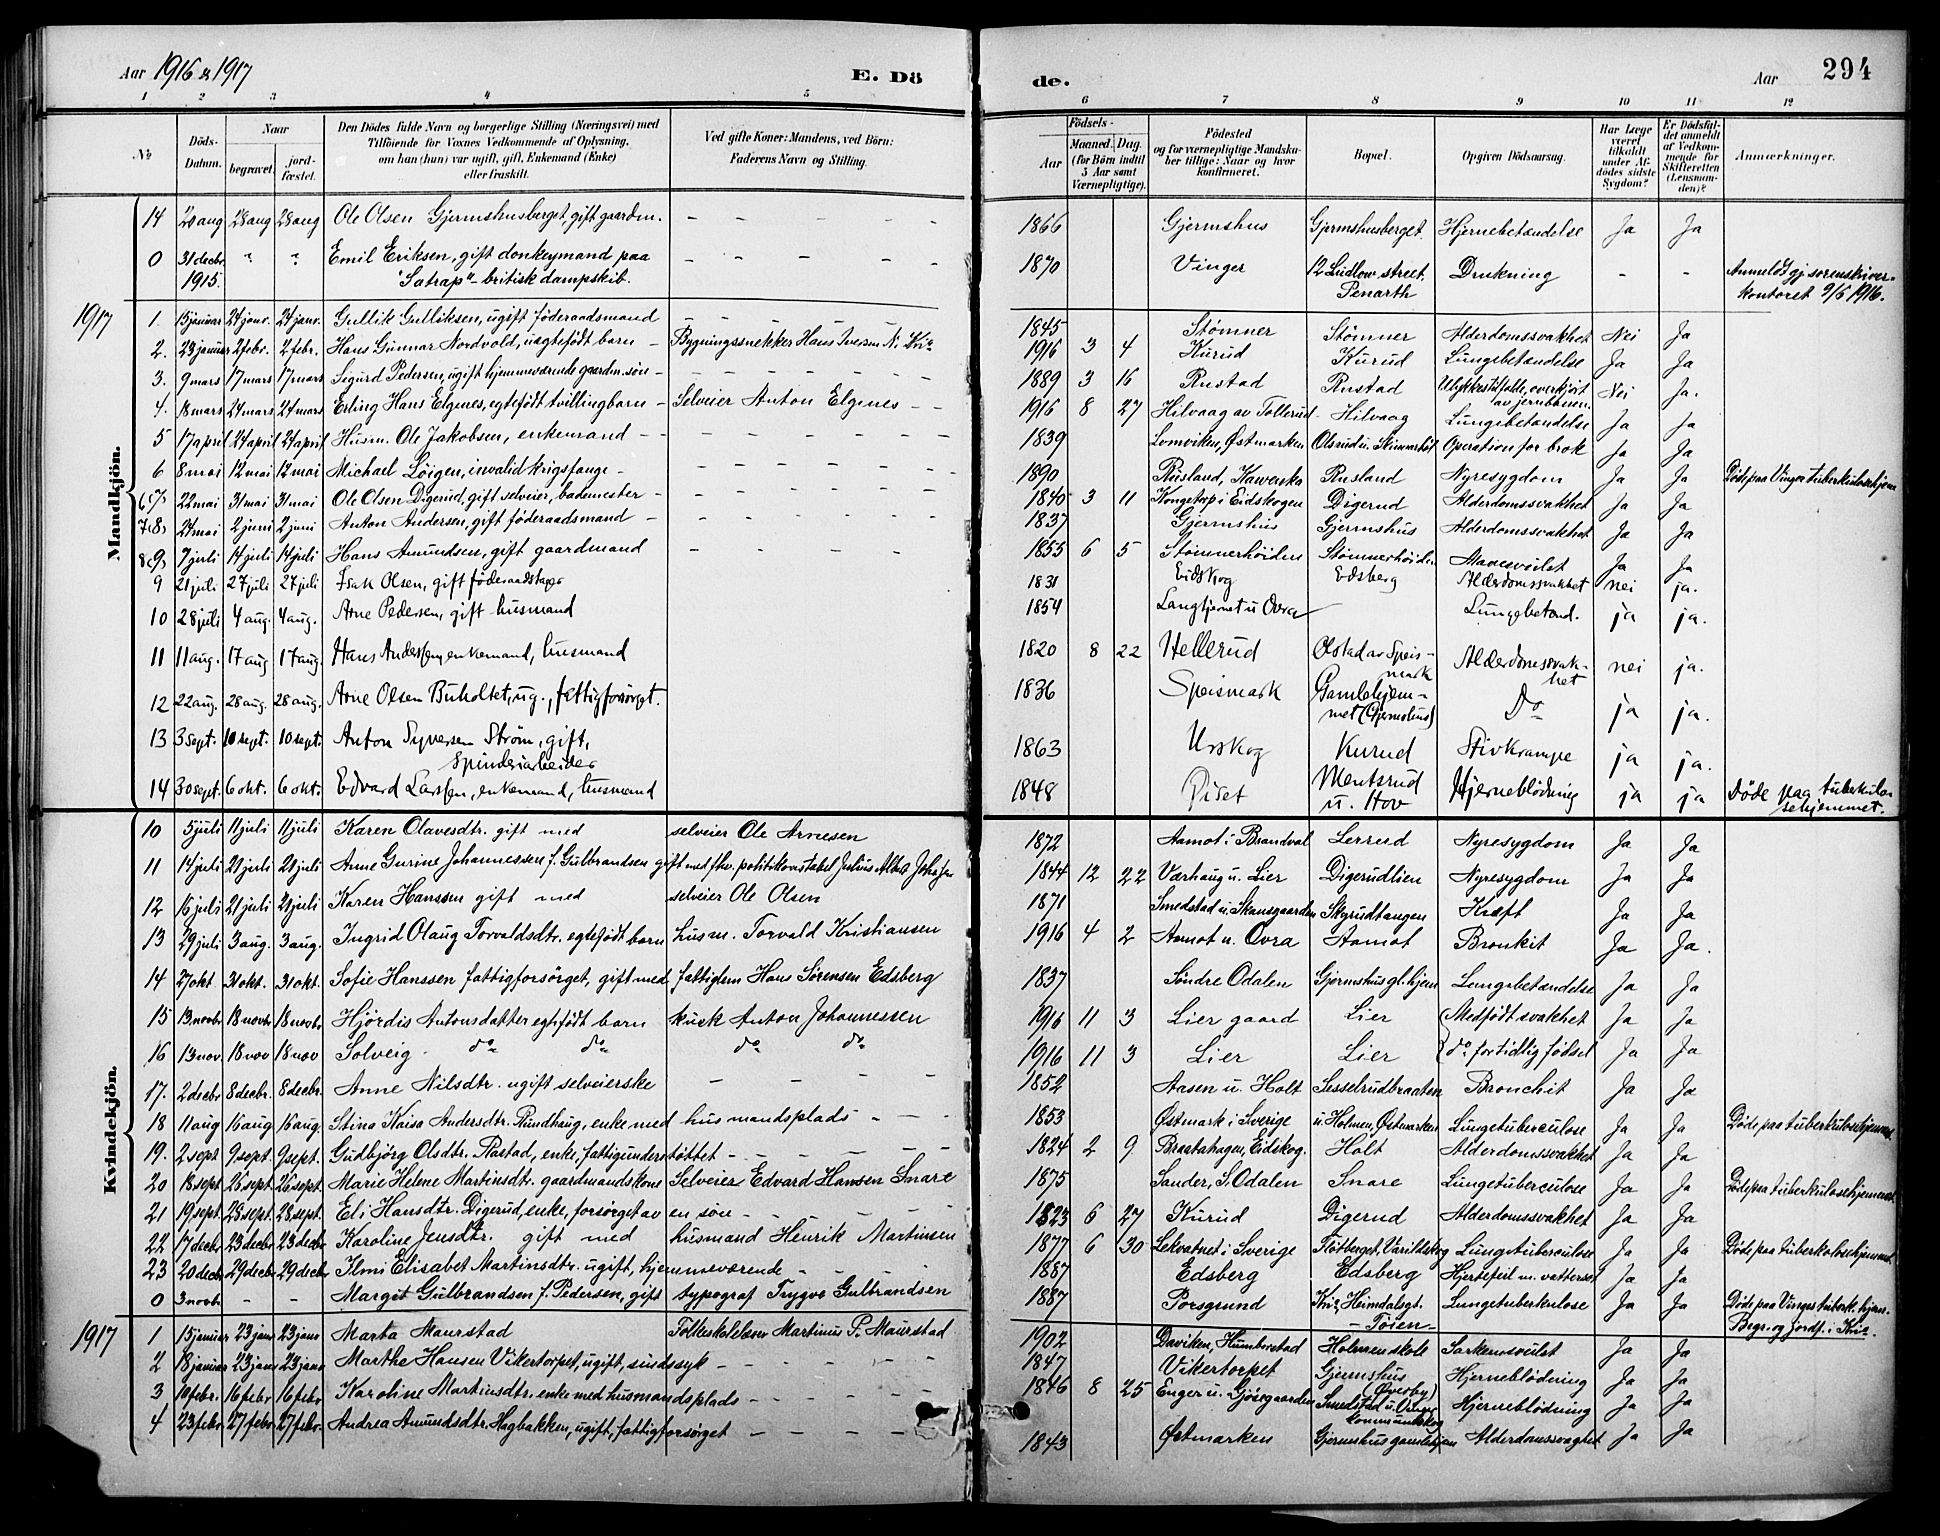 Aar 1916 & 1917
E. Dö
de.
Aar
294
1 2 3 4 5 6 7 8 9 10 11 12
No
Döds-Datum.
Naar
begravet.
jord-fæstet.
Den Dödes fulde Navn og borgerlige Stilling (Næringsvei) med
Tilföiende for Voxnes Vedkommende af Oplysning,
om han (hun) var ugift, gift, Enkemand (Enke)
eller fraskilt.
Ved gifte Koner: Mandens, ved Börn:
Faderens Navn og Stilling.
Födsels-
Aar
Maaned. Dag.
(for Börn indtil
5 Aar samt
Værnepligtige).
Födested
og for værnepligtige Mandska-
ber tillige: Naar og hvor
konfirmeret.
Bopæl.
Opgiven Dödsaarsag.
Har Læge
været
tilkaldt
under Af-
dödes sidste
Sygdom?
Er Dödsfal-
det anmeldt
af Vedkom-
mende for
Skifteretten
(Lensman-
den)?
Anmærkninger.
Mandkjön.
14 20 aug 28 aug 28 aug Ole Olsen Gjermshusberget, gift gaardm. 1866 Gjermshus Gjermshusberget Hjernebetændelse Ja Ja
0 31 decbr 1915. " " Emil Eriksen, gift donkeymand paa "Satrap" - britisk dampskib. 1870 Vinger 12 Ludlow street, Penarth Drukning - - Anmeldt gj. sorenskriver-kontoret 9/5 1916.
1917
1. 15 januar 24 janr. 24 janr. Gullik Gulliksen, ugift föderaadsmand 1845 Stömner Stömner Alderdomssvakhet Nei Ja
2. 23 januar 2 febr. 2 febr. Hans Gunnar Nordvold, uegtefödt barn Bygningssnekker Hans Iversen N. Kria 1916 3 4 Kurud Kurud Lungebetændelse Ja Ja
3. 9 mars 17 mars 17 mars Sigurd Pedersen, ugift hjemmeværende gaardm. sön 1889 3 16 Rustad Rustad Ulykkestilfælde, overkjört av jernbanen. Nei Ja.
4. 18 mars 24 mars 24 mars Erling Hans Elgenes, egtefödt tvillingbarn Selveier Anton Elgenes 1916 8 27 Hilvaag av Tollerud Hilvaag Lungebetændelse Ja Ja
5 17 april 24 april 24 april Husm. Ole Jakobsen, enkemand 1839 Lomviken, Østmarken Olsrud u. Skinnarböl Operation for brok Ja Ja
6 8 mai 12 mai 12 mai Michael Löigen, invalid krigsfange 1890 Rusland, Rusland Nyresygdom Ja Ja Döde paa Vinger tuberkulosehjem
7 22 mai 31 mai 31 mai Ole Olsen Digerud, gift selveier, bademester 1840 3 11 Kongetorp i Eidskogen Digerud Alderdomssvakhet Ja Ja
8 24 mai 2 juni 2 juni Anton Andersen, gift föderaadsmand 1837 Gjermshus Gjermshus Alderdomssvakhet Ja Ja
9 7 juli 14 juli 14 juli Hans Amundsen, gift gaardmand 1855 6 5 Stömnerhöiden Stömnerhöiden Mavesvulst Ja Ja
9 21 juli 27 juli 27 juli Isak Olsen, gift föderaadstager 1831 Eidskog Edsberg Alderdomssvakhet nei ja.
10 28 juli 4 aug. 4 aug. Arne Pedersen, gift husmand 1854 Langtjernet u Ovra Lungebetænd. ja ja.
11 11 aug. 17 aug 17 aug. Hans Anderssen, enkemand, husmand 1820 8 22 Hellerud Olstad av Speis-mark Alderdomssvak-het nei ja.
12 22 aug. 28 aug. 28 aug. Arne Olsen Buholtet, ug., fattigforsörget. 1836 Speismark Gamlehjem-met (Gjermshus) Do ja ja.
13 3 sept. 10 sept. 10 sept. Anton Syversen Ström, gift, Spinderiarbeider 1863 Urskog Kurud Stivkrampe ja ja.
14 30 sept. 6 okt. 6 okt. Edvard Larssen, enkemand, husmand 1848 Piset Mentsrud u. Hov Hjerneblödning ja ja Döde paa tuberkulo-sehjemmet.
Kvindekjön.
10 5 juli 11 juli 11 juli Karen Olavesdtr. gift med selveier Ole Arnesen 1872 Aamot i Brandval Lerrud Nyresygdom Ja Ja
11 14 juli 21 juli 21 juli Anne Gurine Johannessen f. Gulbrandsen gift med fhv. politikonstabel Julius Albert 1844 12 22 Værhaug u. Lier Digerudlien Nyresygdom Ja Ja
12 16 juli 21 juli 21 juli Karen Hanssen gift med selveier Ole Olsen 1871 Smedstad u. Skansgaarden Skyrudtangen Kræft Ja Ja
13 29 juli 3 aug. 3 aug. Ingrid Olaug Torvaldsdtr, egtefödt barn husm. Torvald Kristiansen 1916 4 2 Aamot u. Ovra Aamot Bronkit Ja Ja.
14 27 okt 31 okt. 31 okt. Sofie Hanssen fattigforsörget, gift med fattiglem Hans Sörensen Edsberg 1837 Söndre Odalen Gjermshus gl. hjem Lungebetændelse Ja Ja
15 13 novbr 18 novbr 18 novbr Hjördis Antonsdatter egtefödt barn kusk Anton Johannessen 1916 11 3 Lier gaard Lier Medfödt svakhet Ja Ja
16 13 nov. 18 nov 18 nov Solveig do do do do 1916 11 3 Lier Lier do for tidlig födsel Ja Ja
17. 2 decbr 8 decbr. 8 decbr. Anne Nilsdtr. ugift selveierske 1852 Aasen u. Holt Sesselrudbraaten Bronchit Ja Ja
18 11 aug 16 aug 16 aug. Stina Kaisa Andersdtr. Rundhaug, enke med husmandsplads 1853 Östmark i Sverige u. Holmen, Østmarken Lungetuberculose Ja Ja Döde paa tuberkulosehjemmet
19. 2 sept 9 sept. 9 sept. Gudbjörg Olsdtr. Rastad, enke, fattigunderstöttet 1824 2 9 Braatahagen, Eidskog. Holt Alderdomssvakhet Ja Ja
20 18 sept 26 sept. 26 sept. Marie Helene Martinsdtr. gaardmandskone Selveier Edvard Hansen Snare 1875 Sander, S. Odalen Snare Lungetuberculose Ja Ja Döde paa tuberkulosehjemmet
21 19 sept. 28 sept. 28 sept. Eli Hansdtr. Digerud, enke, forsörget av en sön 1823 6 27 Kurud Digerud Alderdomssvakhet Ja Ja
22 17 decbr 23 decbr 23 decbr Karoline Jensdtr. gift med husmand Henrik Martinsen 1877 6 30 Lekvatnet i Sverige Flötberget, Varildskog Lungetuberculose Ja Ja Döde paa tuberkulosehjemmet
23 20 decbr 29 decbr 29 decbr Ilmi Elisabet Martinsdtr. ugift, hjemmeværende 1887 Edsberg Edsberg Hjertefeil m. vattersot Ja Ja
0 3 novbr - - Margit Gulbrandsen f. Pedersen, gift typograf Trygve Gulbrandsen 1887 Porsgrund Kria, Heimdalsgt. - Töien - Lungetuberkulose Ja Ja Döde paa Vinger tuberk. hjem. Begr. og jordf. i Kria.
1917
1 15 januar 23 janr 23 janr Marta Maurstad Folkeskolelærer Martinus P. Maurstad 1902 Daviken, Humberstad Holmen skole Sarkomsvulst Ja Ja
2 18 januar 23 janr 23 janr Marthe Hansen Vikertorpet, ugift, sindssyk 1847 Vikertorpet Gjermshus (Överby) Hjerneblödning Ja Ja
3 10 febr. 16 febr 16 febr Karoline Martinsdtr. enke med husmandsplads 1846 8 25 Enger u. Gjösegaarden Smedstad u. Hjerneblödning Ja Ja
4 23 febr 27 febr 27 febr. Andrea Amundsdtr. Hagbakken, ugift, fattigforsörget 1843 Østmarken Gjermshus gamlehjem Alderdomssvaghet Ja Ja